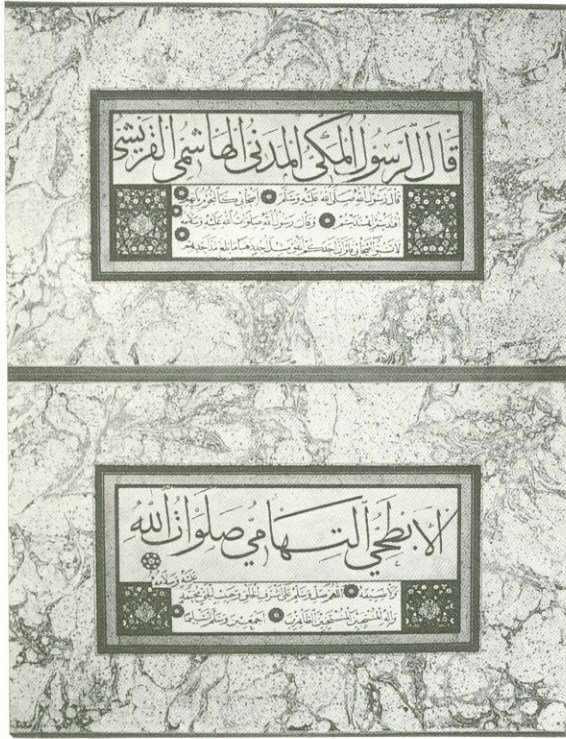 قَالَ الرَّسُولُ الْمَكِّيُّ الْمَدَنِيُّ الْهَاشِمِيُّ الْقُرَيْشِيُّ
قَالَ رَسُولُ اللهِ صَلَّى اللهُ عَلَيْهِ وَسَلَّمَ أصحابي كالنجوم بأيهم
اقتديتم اهتديتم وَقَالَ رَسُولُ اللهِ صَلَوَاتُ اللهِ عَلَيْهِ وَسَلَامُهُ
لا تسبوا أصحابي فلو أن أحدكم أنفق مثل أحد ذهبا ما بلغ مد أحدهم
الْأَبْطَحِيُّ التِّهَامِيُّ صَلَوَاتُ اللهِ
عَلَيْهِ وَسَلَامُهُ
وَلَا نَصِيفَهُ اللهم صل وسلم على أشرف الخلق وحبيب الحق محمد
وآله أجمعين وسلم تسليما